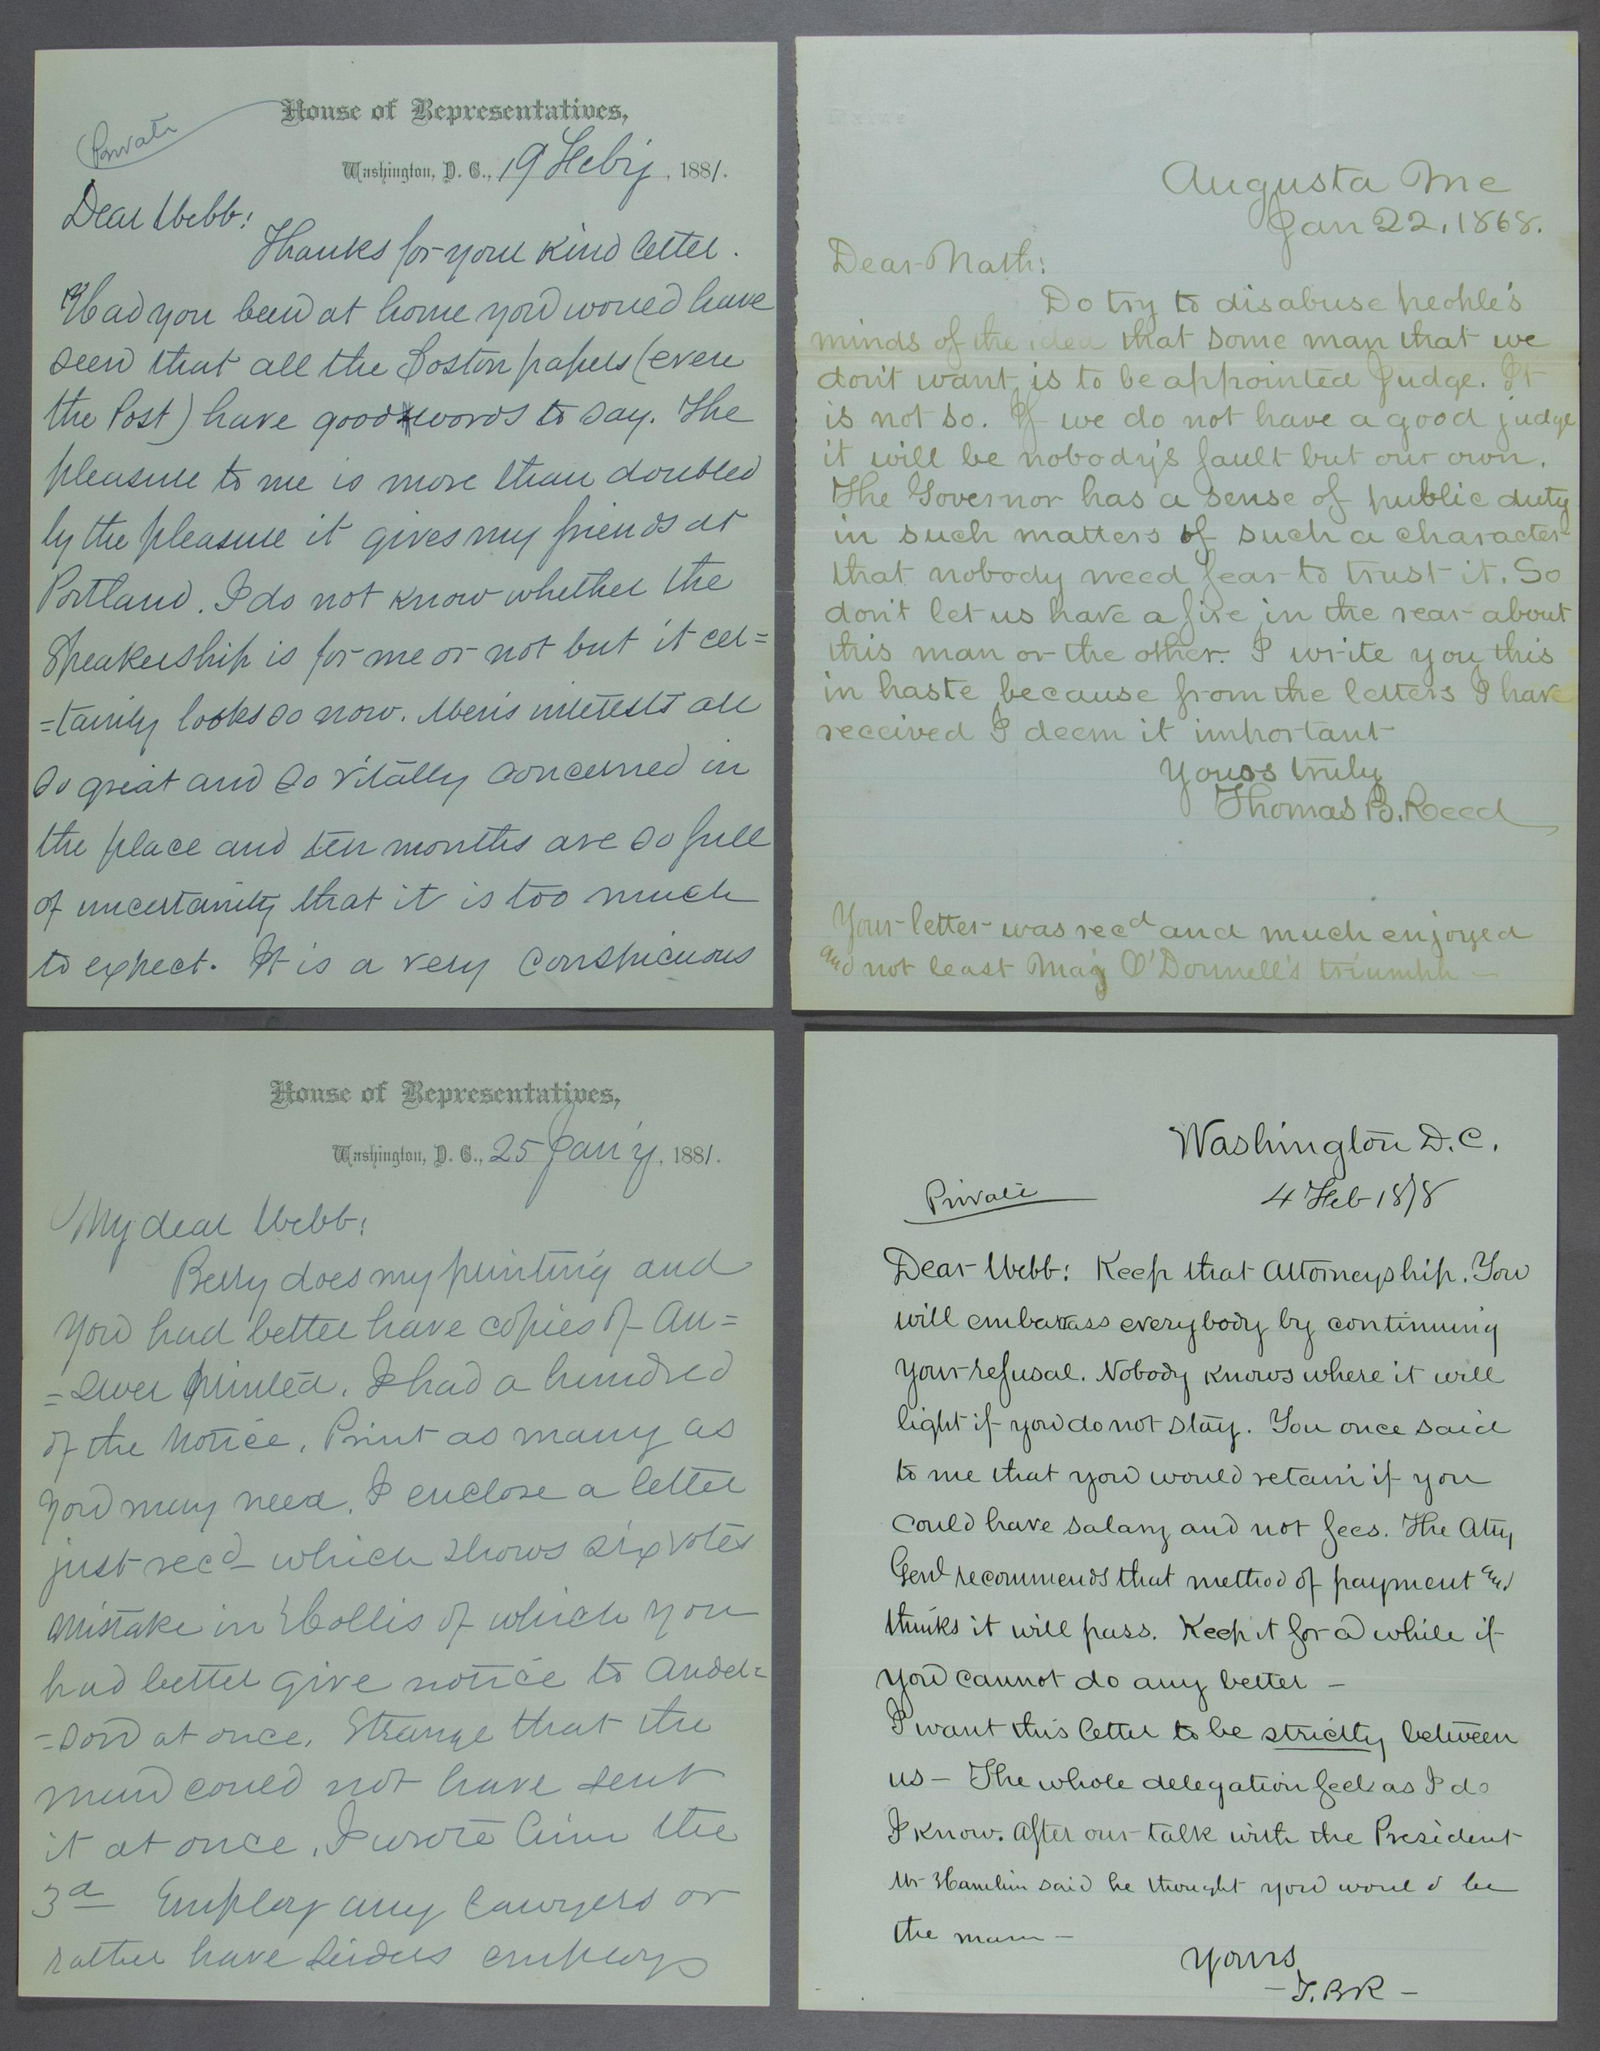 Private
House of Representatives,
Washington, D. C., 19 Feb'y, 1881.
Dear Webb:
Thanks for your kind letter.
Had you been at home you would have
seen that all the Boston papers (even
the Post) have good words to say. The
pleasure to me is more than doubled
by the pleasure it gives my friends at
Portland. I do not know whether the
Speakership is for me or not but it cer=
=tainly looks so now. Men's interests are
so great and so vitally concerned in
the place and ten months are so full
of uncertainty that it is too much
to expect. It is a very conspicuous
Augusta Me
Jan 22, 1868.
Dear Nath:
Do try to disabuse people's
minds of the idea that some man that we
don't want is to be appointed Judge. It
is not so. If we do not have a good judge
it will be nobody's fault but our own.
The Governor has a sense of public duty
in such matters of such a character
that nobody need fear to trust it. So
don't let us have a fire in the rear about
this man or the other. I write you this
in haste because from the letters I have
received I deem it important
Yours truly
Thomas B. Reed
Your letter was recd and much enjoyed
and not least Maj O'Donnell's triumph —
House of Representatives,
Washington, D. C., 25 Jan'y, 1881.
My dear Webb:
Berry does my printing and
you had better have copies of An=
=swer printed. I had a hundred
of the Notice. Print as many as
you may need. I enclose a letter
just recd which shows six votes
mistake in Hollis of which you
had better give notice to Ander=
=son at once. Strange that the
man could not have sent
it at once. I wrote him the
3d Employ any lawyers or
rather have employ
Washington D.C.
Private
4 Feb 1878
Dear Webb: Keep that Attorneyship. You
will embarass everybody by continuing
your refusal. Nobody knows where it will
light if you do not stay. You once said
to me that you would retain if you
could have salary and not fees. The Atty
Genl recommends that method of payment and
thinks it will pass. Keep it for a while if
you cannot do any better —
I want this letter to be strictly between
us — The whole delegation feels as I do
I know. After our talk with the President
Mr Hamlin said he thought you would be
the man —
Yours
— T.B.R —